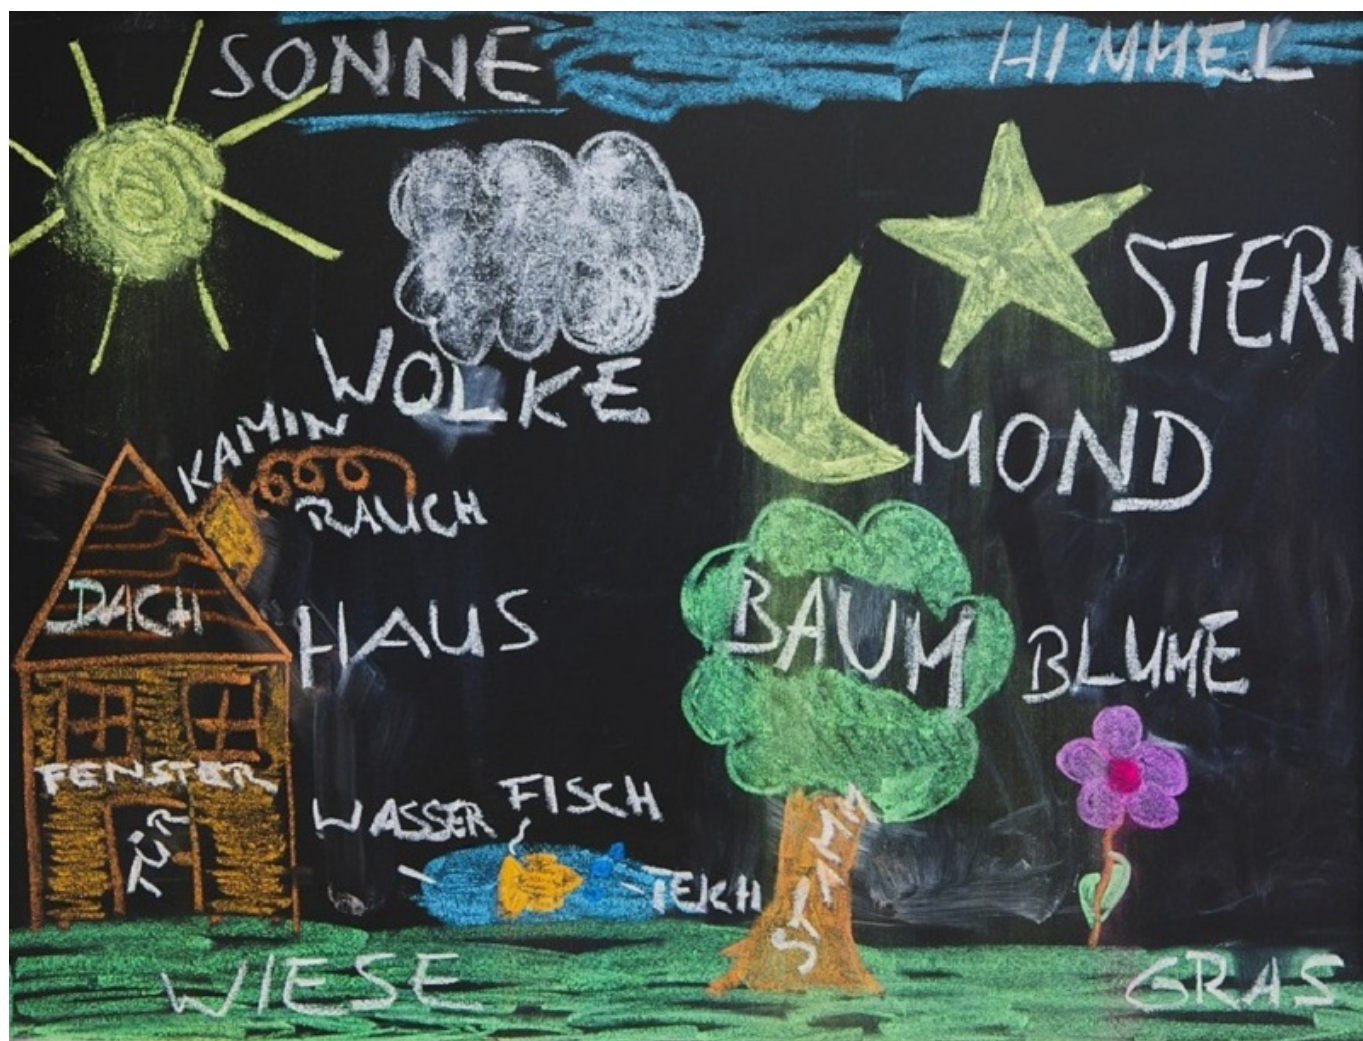 SONNE
HIMMEL
STERN
WOLKE
MOND
KAMIN
RAUCH
DACH
HAUS
BAUM
BLUME
FENSTER
TÜR
WASSER
FISCH
TEICH
STAMM
WIESE
GRAS